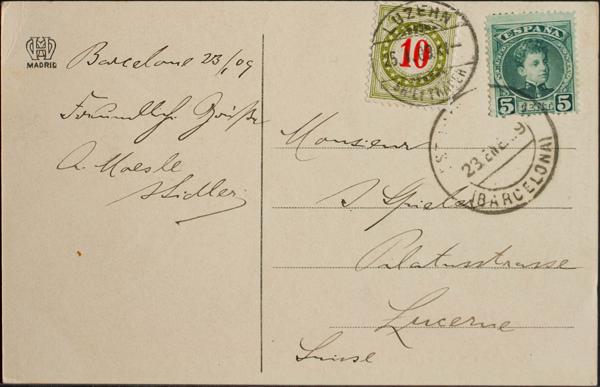 MADRID
Barcelone 23/1 09
Freundlch. Grüße
A. Maesle
LUZERN
10
BRIEFTRÄGER
ESPAÑA
5 5
23 ENE 09
(BARCELONA)
Monsieur
J Spieler
Pilatusstrasse
Lucerne
Suisse